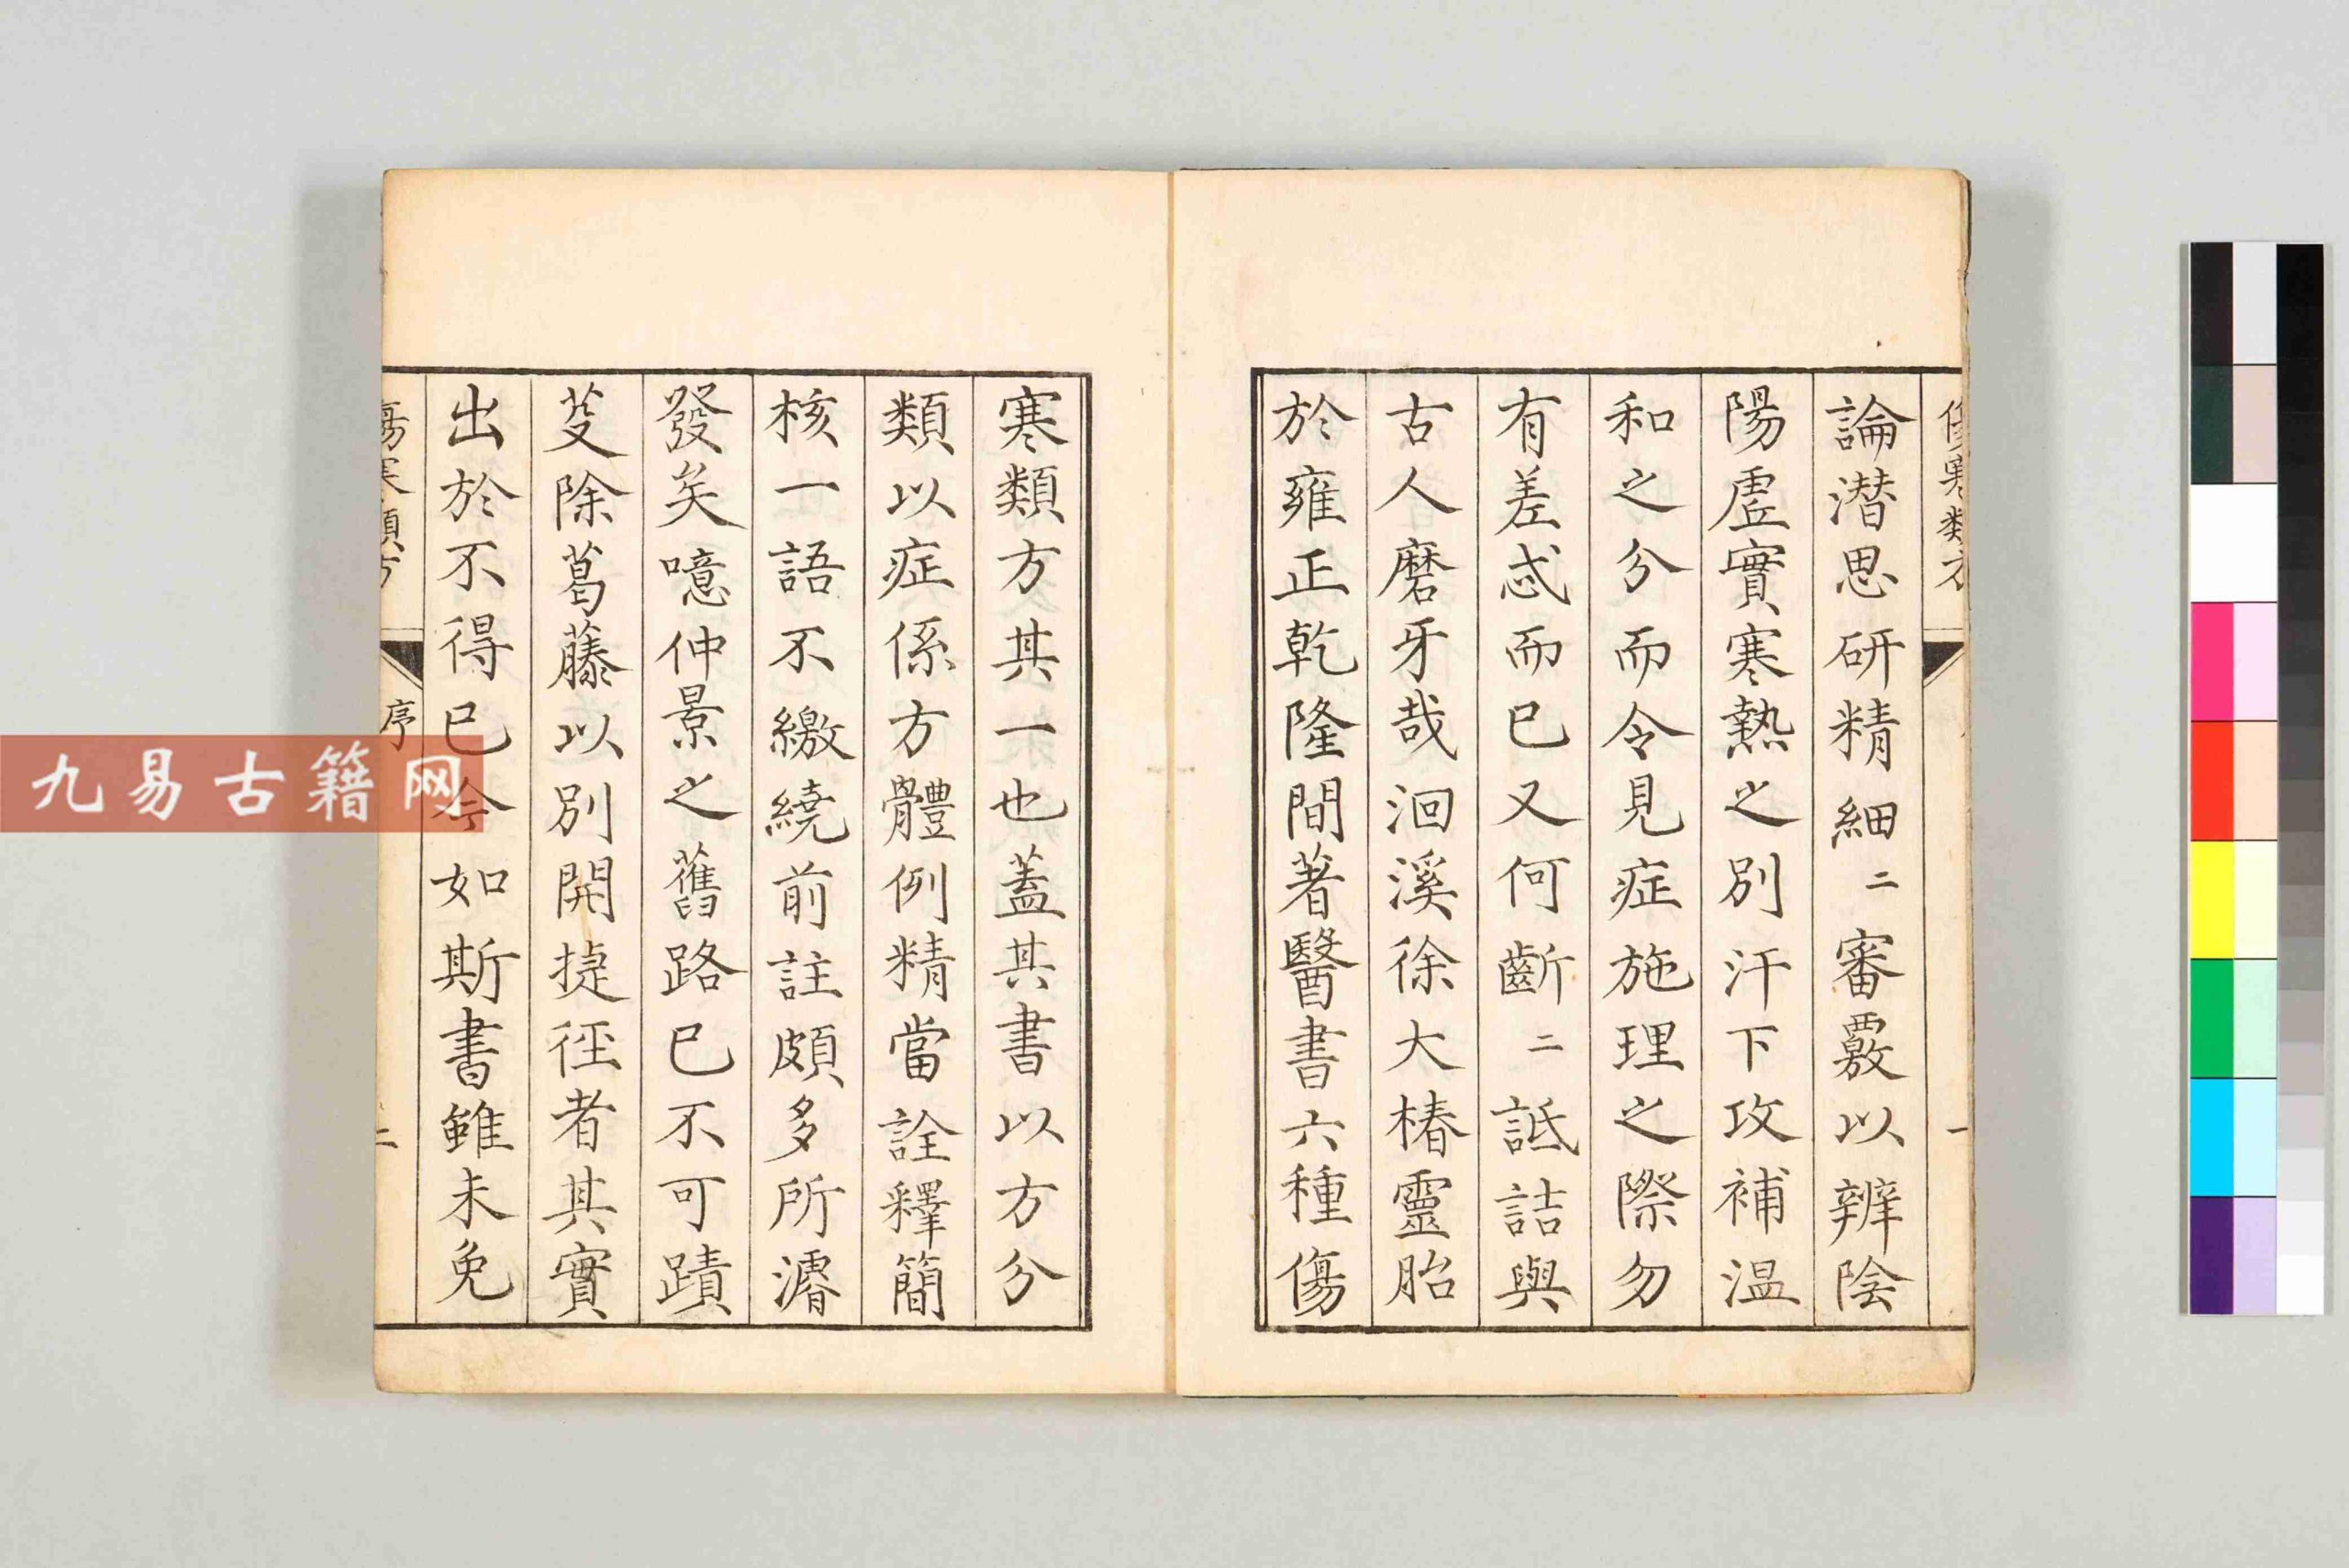 傷寒類方
一
論潛思研精細二審覈以辨陰
陽虛實寒熱之別汗下攻補温
和之分而令見症施理之際勿
有差忒而已又何齗二詆詰與
古人磨牙哉洄溪徐大椿靈胎
於雍正乾隆間著醫書六種傷
寒類方其一也蓋其書以方分
類以症係方體例精當詮釋簡
核一語不繳繞前註頗多所濬
發矣噫仲景之舊路已不可蹟
芟除葛藤以別開捷徑者其實
出於不得已今如斯書雖未免
傷寒類方
序
二
九易古籍网